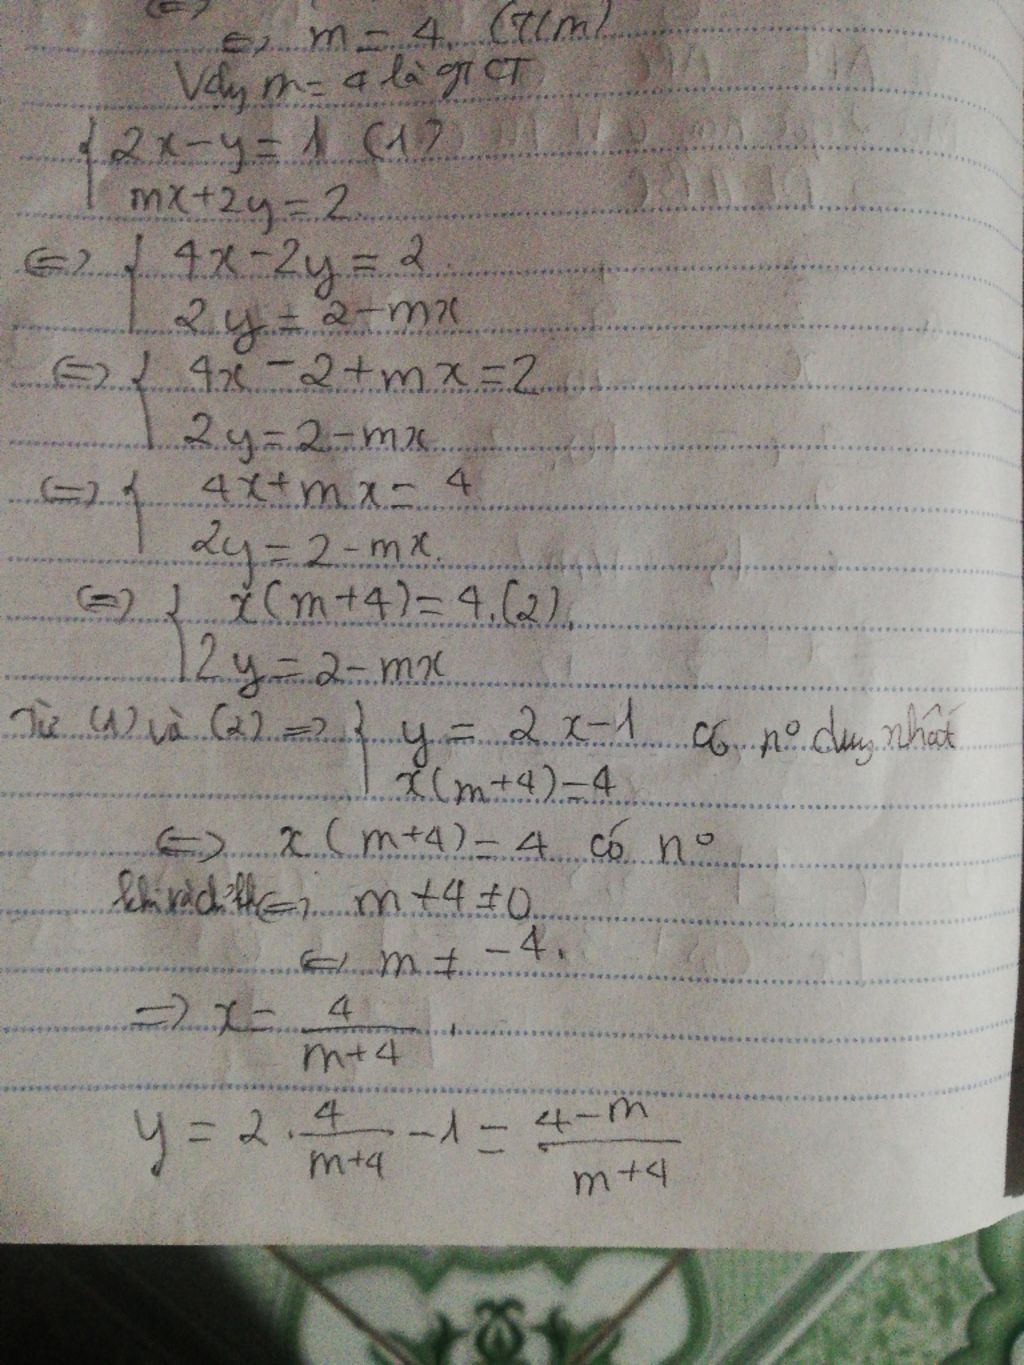 <=>
<=> m = 4. (t/m)
Vậy m = 4 là gt CT
{ 2x - y = 1 (1)
mx + 2y = 2.
<=> { 4x - 2y = 2.
2y = 2 - mx
<=> { 4x - 2 + mx = 2
2y = 2 - mx
<=> { 4x + mx = 4
2y = 2 - mx.
<=> { x(m+4) = 4. (2).
2y = 2 - mx
Từ (1) và (2) => { y = 2x - 1 có n° duy nhất
x(m+4) = 4
<=> x(m+4) = 4 có n°
<=> m + 4 ≠ 0
<=> m ≠ -4.
=> x = 4/(m+4).
y = 2 . 4/(m+4) - 1 = (4-m)/(m+4)